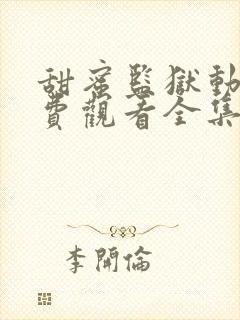 甜蜜監獄動
費觀看全集
李開倫